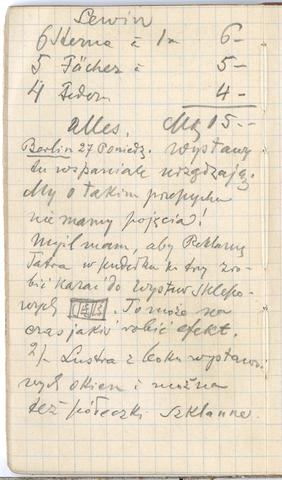 Lewin
6 Sterne à 1 M 6 –
5 Fächer à 5 –
4 Federn 4 –
alles. Mk 15 –
Berlin 27 Poniedz. Wystawy
tu wspaniale urządzają.
My o takim przepychu
nie mamy pojęcia!
Myśl mam, aby Reklamę
Tatra w pudełku
bić kazać do wystaw sklepo-
wych. To może na
czas jakiś robić efekt.
2/– Lustra z boku wystawo-
wych okien i można
też półeczki szklanne.